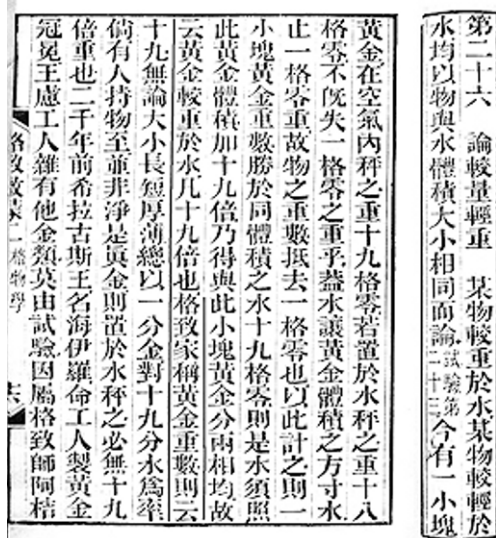 第二十六　論較量輕重　某物較重於水某物較輕於
水均以物與水體積大小相同而論試驗第二十三今有一小塊
黃金在空氣內秤之重十九格零若置於水秤之重十八
格零不旣失一格零之重乎蓋水讓黃金體積之方寸水
止一格零重故物之重數抵去一格零也以此計之則一
小塊黃金重數勝於同體積之水十九格零則是水須照
此黃金體積加十九倍乃得與此小塊黃金分兩相均故
云黃金較重於水几十九倍也格致家稱黃金重數則云
十九無論大小長短厚薄總以一分金對十九分水爲率
倘有人持物至並非淨是眞金則置於水秤之必無十九
倍重也二千年前希拉古斯王名海伊羅命工人製黃金
冠冕王慮工人雜有他金類莫由試驗因屬格致師阿桔
格致啟蒙　二　格物學